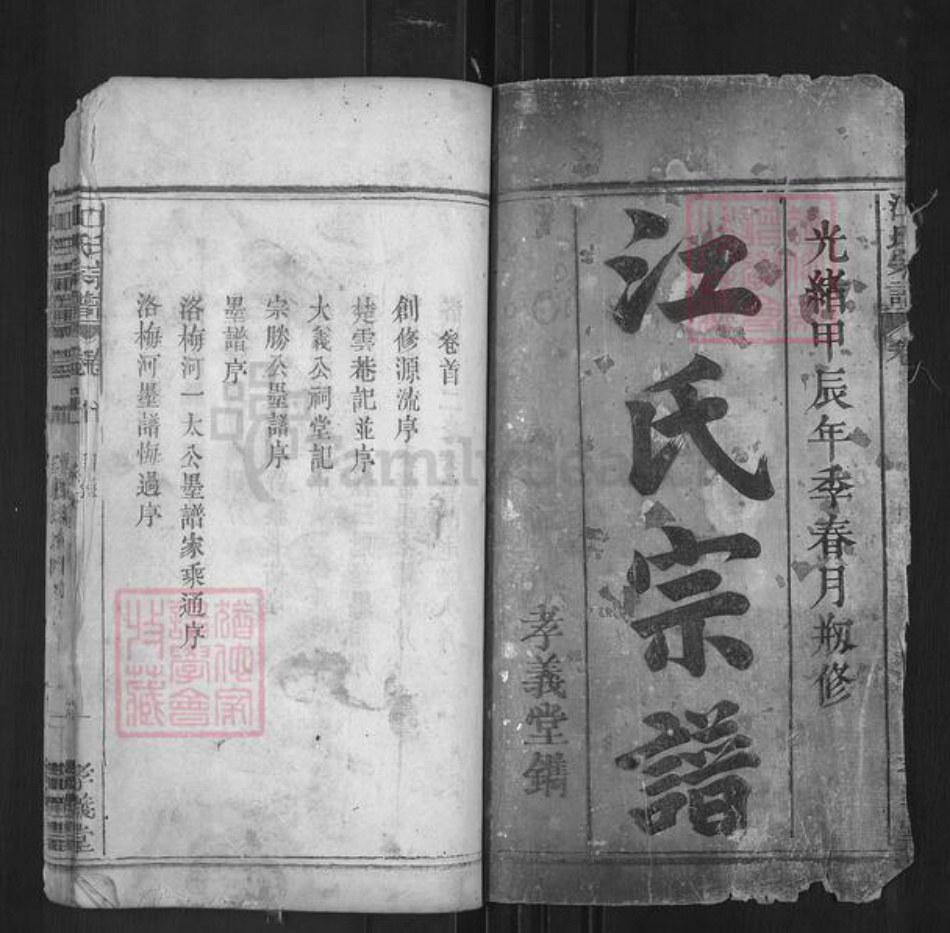 光緒甲辰年季春月剏修
江氏宗譜
孝義堂鐫
卷首二
創修源流序
楚雲巷記並序
大義公祠堂記
宗勝公墨譜序
墨譜序
洛梅河一太公墨譜家乘通序
洛梅河墨譜悔過序
孝義堂
FamilySearch